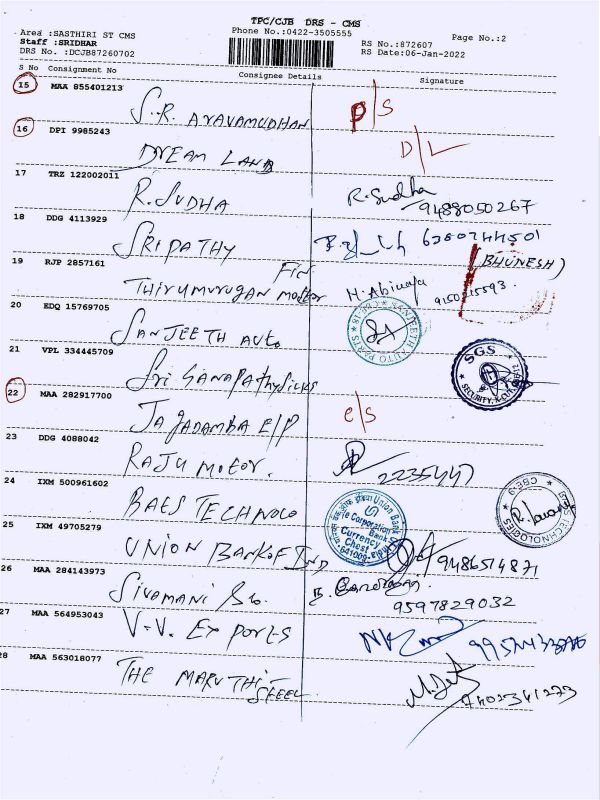 TPC/CJB DRS - CMS
Area :SASTHIRI ST CMS
Phone No.:0422-3505555
Page No.:2
Staff :SRIDHAR
RS No.:872607
DRS No. :DCJB87260702
RS Date:06-Jan-2022
S No Consignment No Consignee Details Signature
15 MAA 855401213
S.R. ARAVAMUDHAN P/S
16 DPI 9985243
DREAM LAND D/L
17 TRZ 122002011
R. SUDHA R. Sudha
9488050267
18 DDG 4113929
SRIPATHY 6380744501
(BHUNESH)
19 RJP 2857161
Fin
Thirumurugan motor H. Abinaya
9150515593
20 EDQ 15769705
SANJEETH AUTO SANJEETH AUTO PARTS
21 VPL 334445709
Sri Ganapathy Silks SGS SECURITY
22 MAA 282917700
Jagadamba E/P e/s
23 DDG 4088042
RAJU MOTOR. 2235447
24 IXM 500961602
BAES TECHNOLO TECHNOLOGIES
25 IXM 49705279
UNION BANK OF IND Union Bank
Currency
Chest
641009
9486574871
26 MAA 284143973
Sivamani
9597829032
27 MAA 564953043
V-V. EXPORTS
28 MAA 563018077
THE MARUTHI M.
STEEL 7402341273